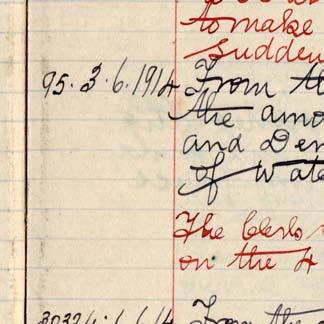 to make
sudden
95. 3.6.1914 From th
the amo
and Den
of Wate
The Clerk
on the 4
30324. 6.6.14 From the